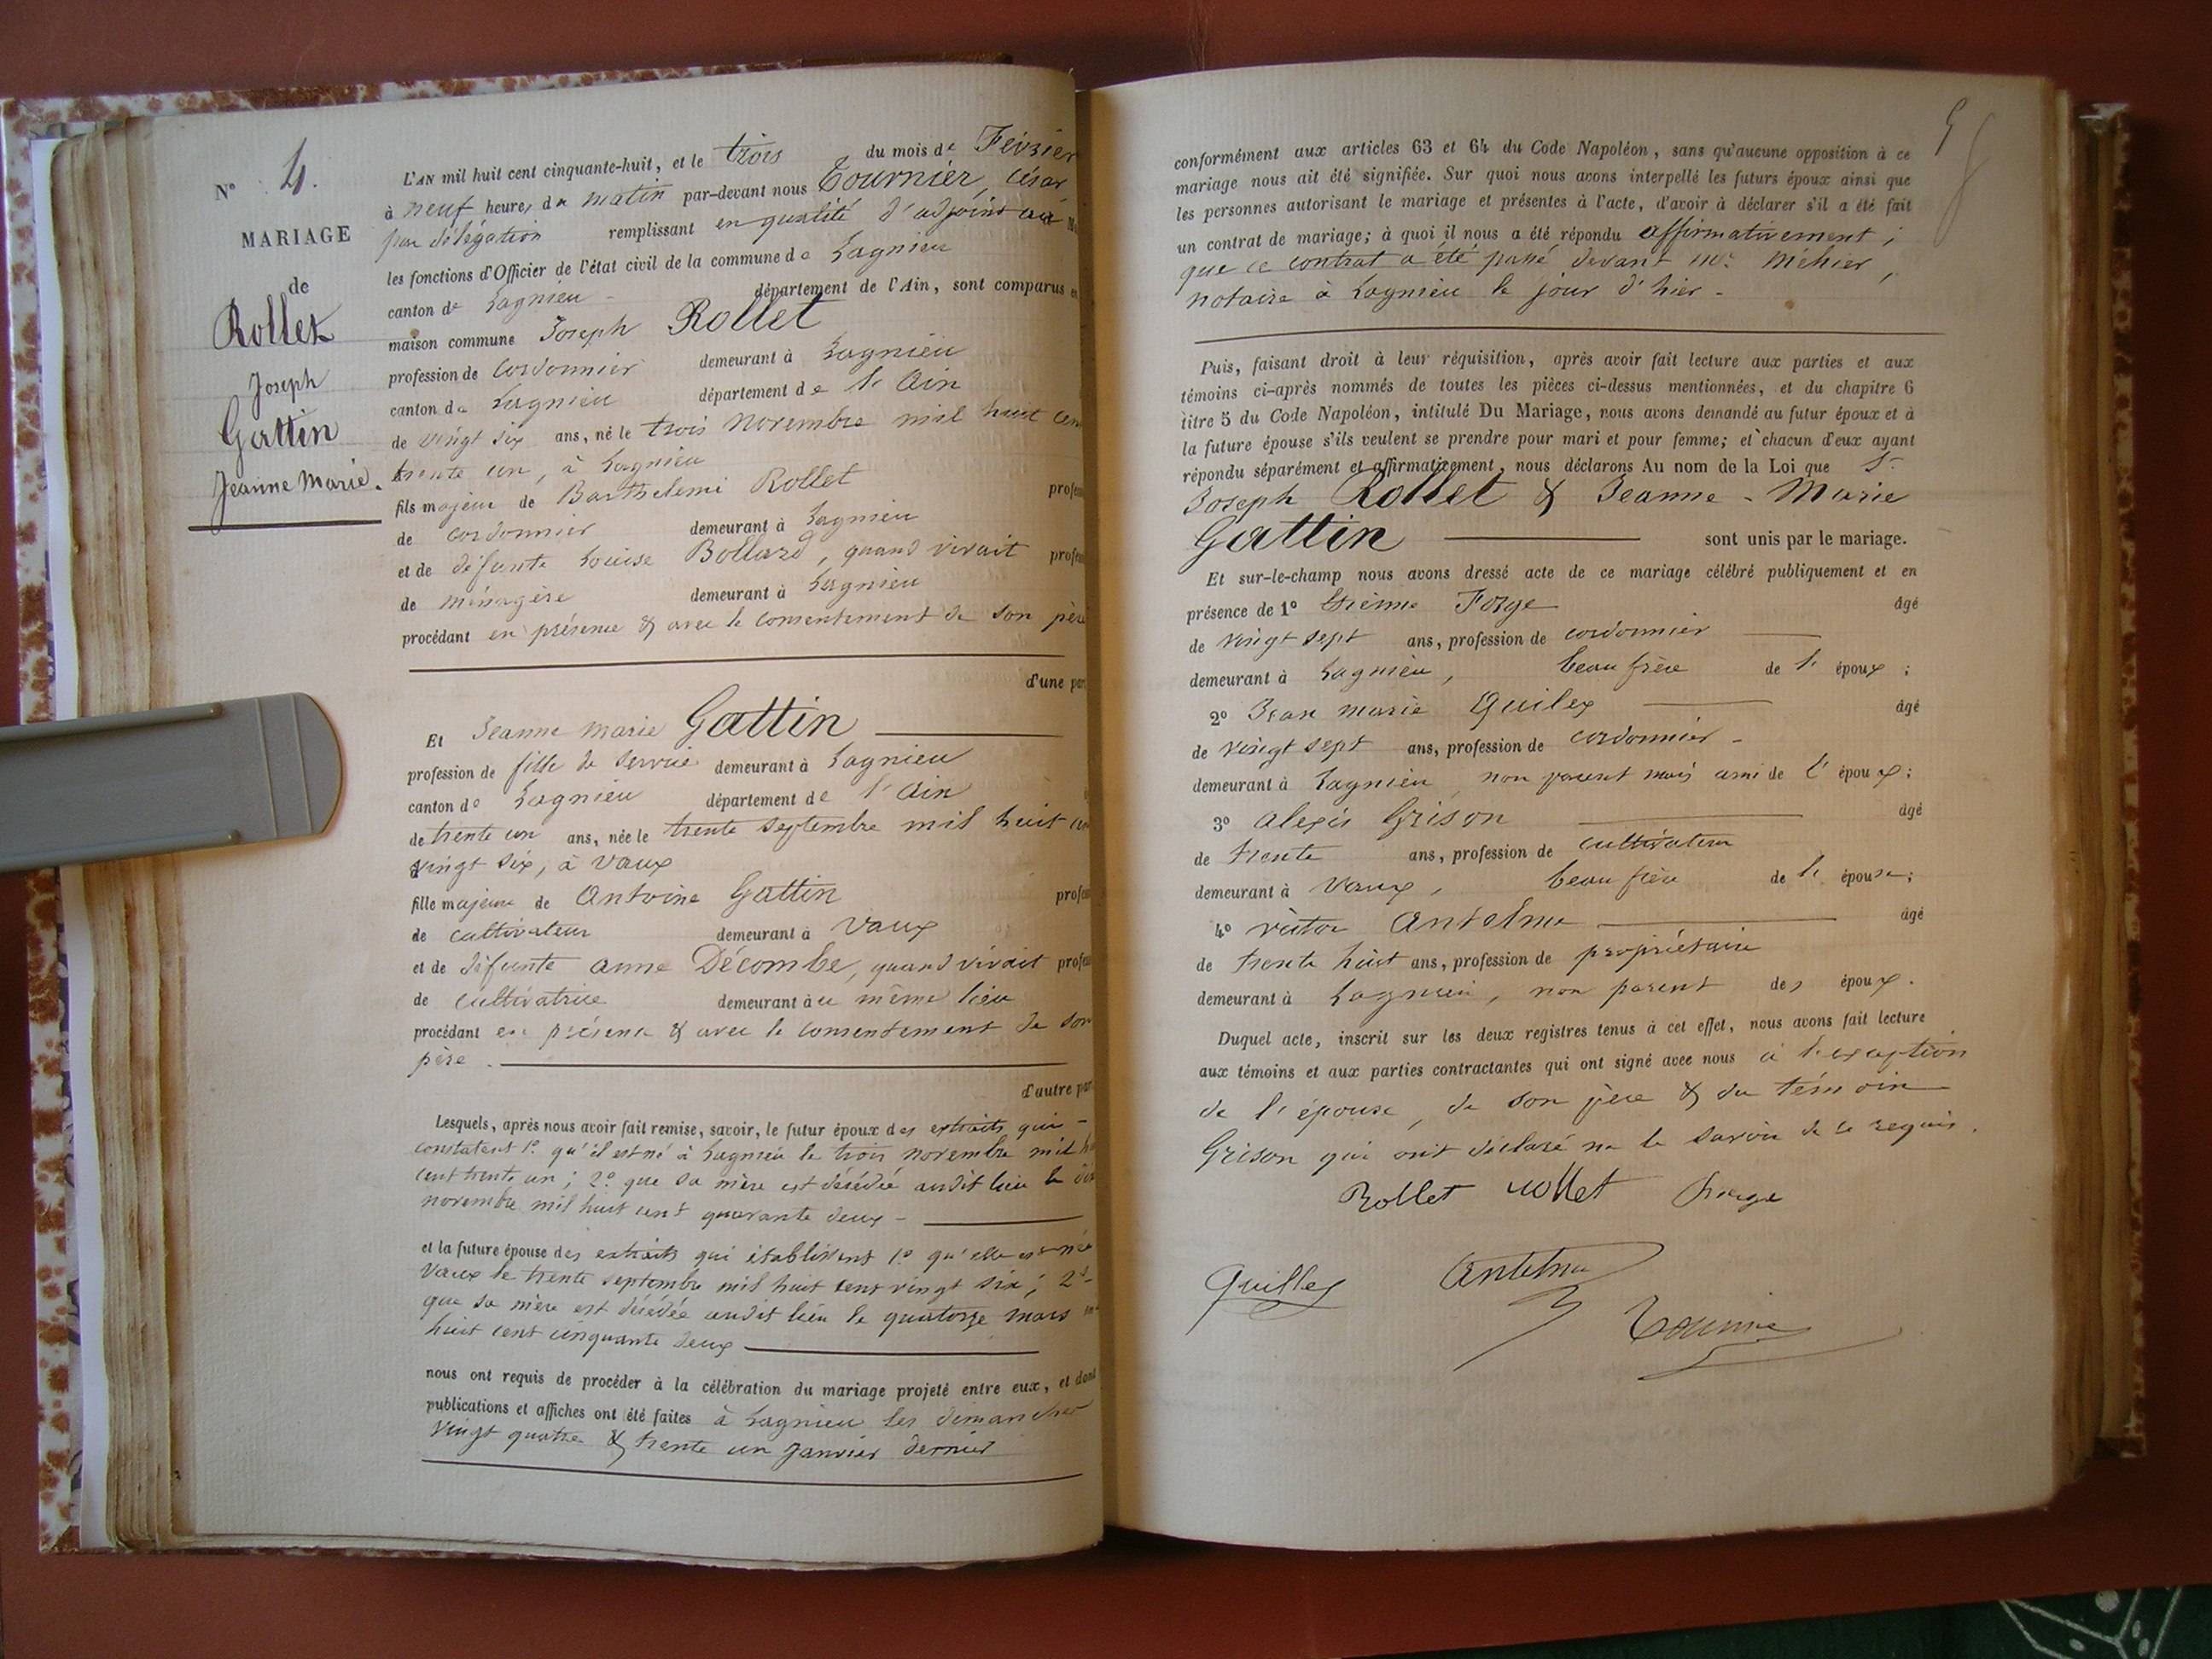 N° 4.
MARIAGE
de
Rollet
Joseph
Gattin
Jeanne Marie.
L'AN mil huit cent cinquante-huit, et le trois du mois de Février
à neuf heures du matin par-devant nous Tournier, César
par délégation remplissant en qualité d'adjoint au
les fonctions d'Officier de l'état civil de la commune de Lagnieu
canton de Lagnieu - département de l'Ain, sont comparus en
maison commune Joseph Rollet
profession de cordonnier demeurant à Lagnieu
canton de Lagnieu département de l'Ain
de vingt six ans, né le trois Novembre mil huit cen
trente un, à Lagnieu
fils majeur de Barthelemi Rollet profess
de cordonnier demeurant à Lagnieu
et de défunte Louise Bollard, quand vivait profess
de ménagère demeurant à Lagnieu
procédant en présence & avec le consentement de son père
d'une par
Et Jeanne Marie Gattin
profession de fille de service demeurant à Lagnieu
canton de Lagnieu département de l'Ain
de trente un ans, née le trente septembre mil huit cen
vingt six, à Vaux
fille majeure de Antoine Gattin profess
de cultivateur demeurant à Vaux
et de défunte anne Décombe, quand vivait profess
de cultivatrice demeurant au même lieu
procédant en présence & avec le consentement de son
père.
d'autre par
Lesquels, après nous avoir fait remise, savoir, le futur époux des extraits qui -
constatent 1° qu'il est né à Lagnieu le trois novembre mil
cent trente un; 2° que sa mère est décédée audit lieu le
novembre mil huit cent quarante deux -
et la future épouse des extraits qui établissent 1° qu'elle est née
Vaux le trente septembre mil huit cent vingt six; 2° -
que sa mère est décédée audit lieu le quatorze mars
huit cent cinquante deux
nous ont requis de procéder à la célébration du mariage projeté entre eux, et dont
publications et affiches ont été faites à Lagnieu les dimanches
vingt quatre & trente un janvier dernier
conformément aux articles 63 et 64 du Code Napoléon, sans qu'aucune opposition à ce
mariage nous ait été signifiée. Sur quoi nous avons interpellé les futurs époux ainsi que
les personnes autorisant le mariage et présentes à l'acte, d'avoir à déclarer s'il a été fait
un contrat de mariage; à quoi il nous a été répondu affirmativement;
que ce contrat a été passé devant Me. Méhier,
notaire à Lagnieu le jour d'hier -
Puis, faisant droit à leur réquisition, après avoir fait lecture aux parties et aux
témoins ci-après nommés de toutes les pièces ci-dessus mentionnées, et du chapitre 6
titre 5 du Code Napoléon, intitulé Du Mariage, nous avons demandé au futur époux et à
la future épouse s'ils veulent se prendre pour mari et pour femme; et chacun d'eux ayant
répondu séparément et affirmativement, nous déclarons Au nom de la Loi que
Joseph Rollet & Jeanne-Marie
Gattin sont unis par le mariage.
Et sur-le-champ nous avons dressé acte de ce mariage célébré publiquement et en
présence de 1° Etienne Forge âgé
de vingt sept ans, profession de cordonnier
demeurant à Lagnieu, beau frère de l' époux;
2° Jean marie Quilex âgé
de vingt sept ans, profession de cordonnier -
demeurant à Lagnieu non parent mais ami de l' époux;
3° alexis Grison âgé
de trente ans, profession de cultivateur
demeurant à Vaux, beau frère de l' épouse;
4° victor Antelme âgé
de trente huit ans, profession de propriétaire
demeurant à Lagnieu, non parent des époux.
Duquel acte, inscrit sur les deux registres tenus à cet effet, nous avons fait lecture
aux témoins et aux parties contractantes qui ont signé avec nous à l'exception
de l'épouse, de son père & du témoin
Grison qui ont déclaré ne le savoir de ce requis.
Rollet rollet forge
Quillex Antelme
Tournier